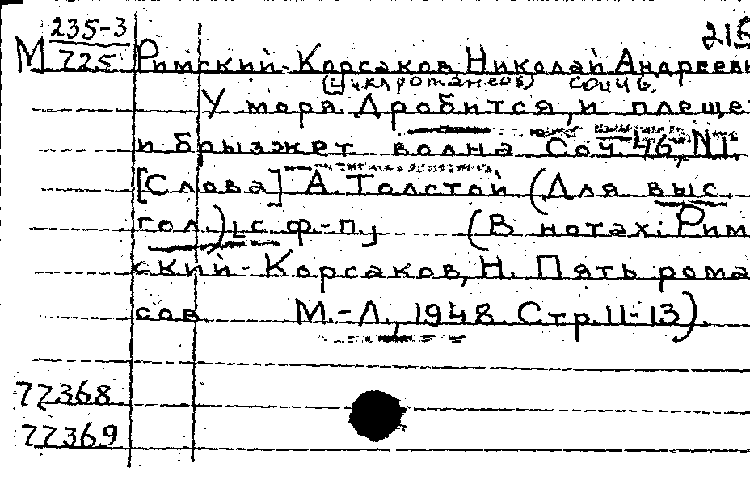 215
М 235-3
725
Римский-Корсаков, Николай Андрееви
(Цикл романсов) соч 46,
У моря. Дробится, и плеще
и брызжет волна Соч 46, N1.
[Слова] А. Толстой (Для выс.
гол.) [с ф-п] (В нотах: Рим
ский-Корсаков, Н. Пять рома
сов М.-Л., 1948 Стр. 11-13).
77368
77369